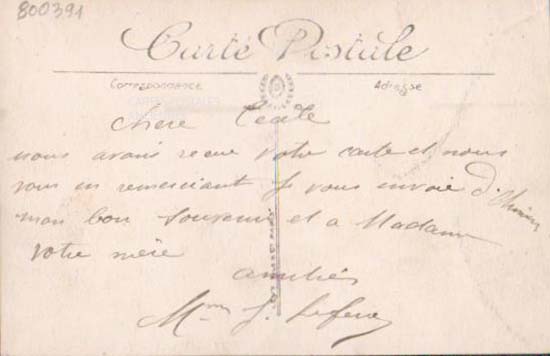 800391
Carte Postale
Correspondance
Adresse
chere Cecile
nous avons recue votre carte et nous
vous en remerciant Je vous envoie d'
mon bon souvenir et a Madame
votre mère
amitiés
Mme J. Lefevre